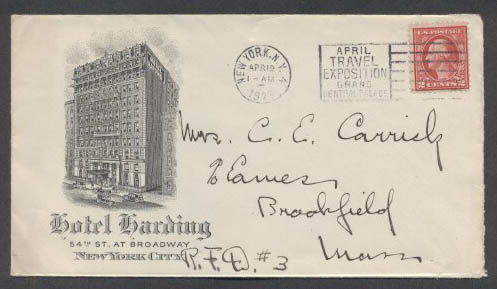 NEW YORK, N.Y.
APR 12
-AM
APRIL
TRAVEL
EXPOSITION
GRAND
CENTRAL PALACE
U.S. POSTAGE
2 CENTS 2
Mrs. C. E. Carrick
Brookfield
Mass
R.F.D. #3
HOTEL
Hotel Harding
54TH ST., AT BROADWAY
NEW YORK CITY